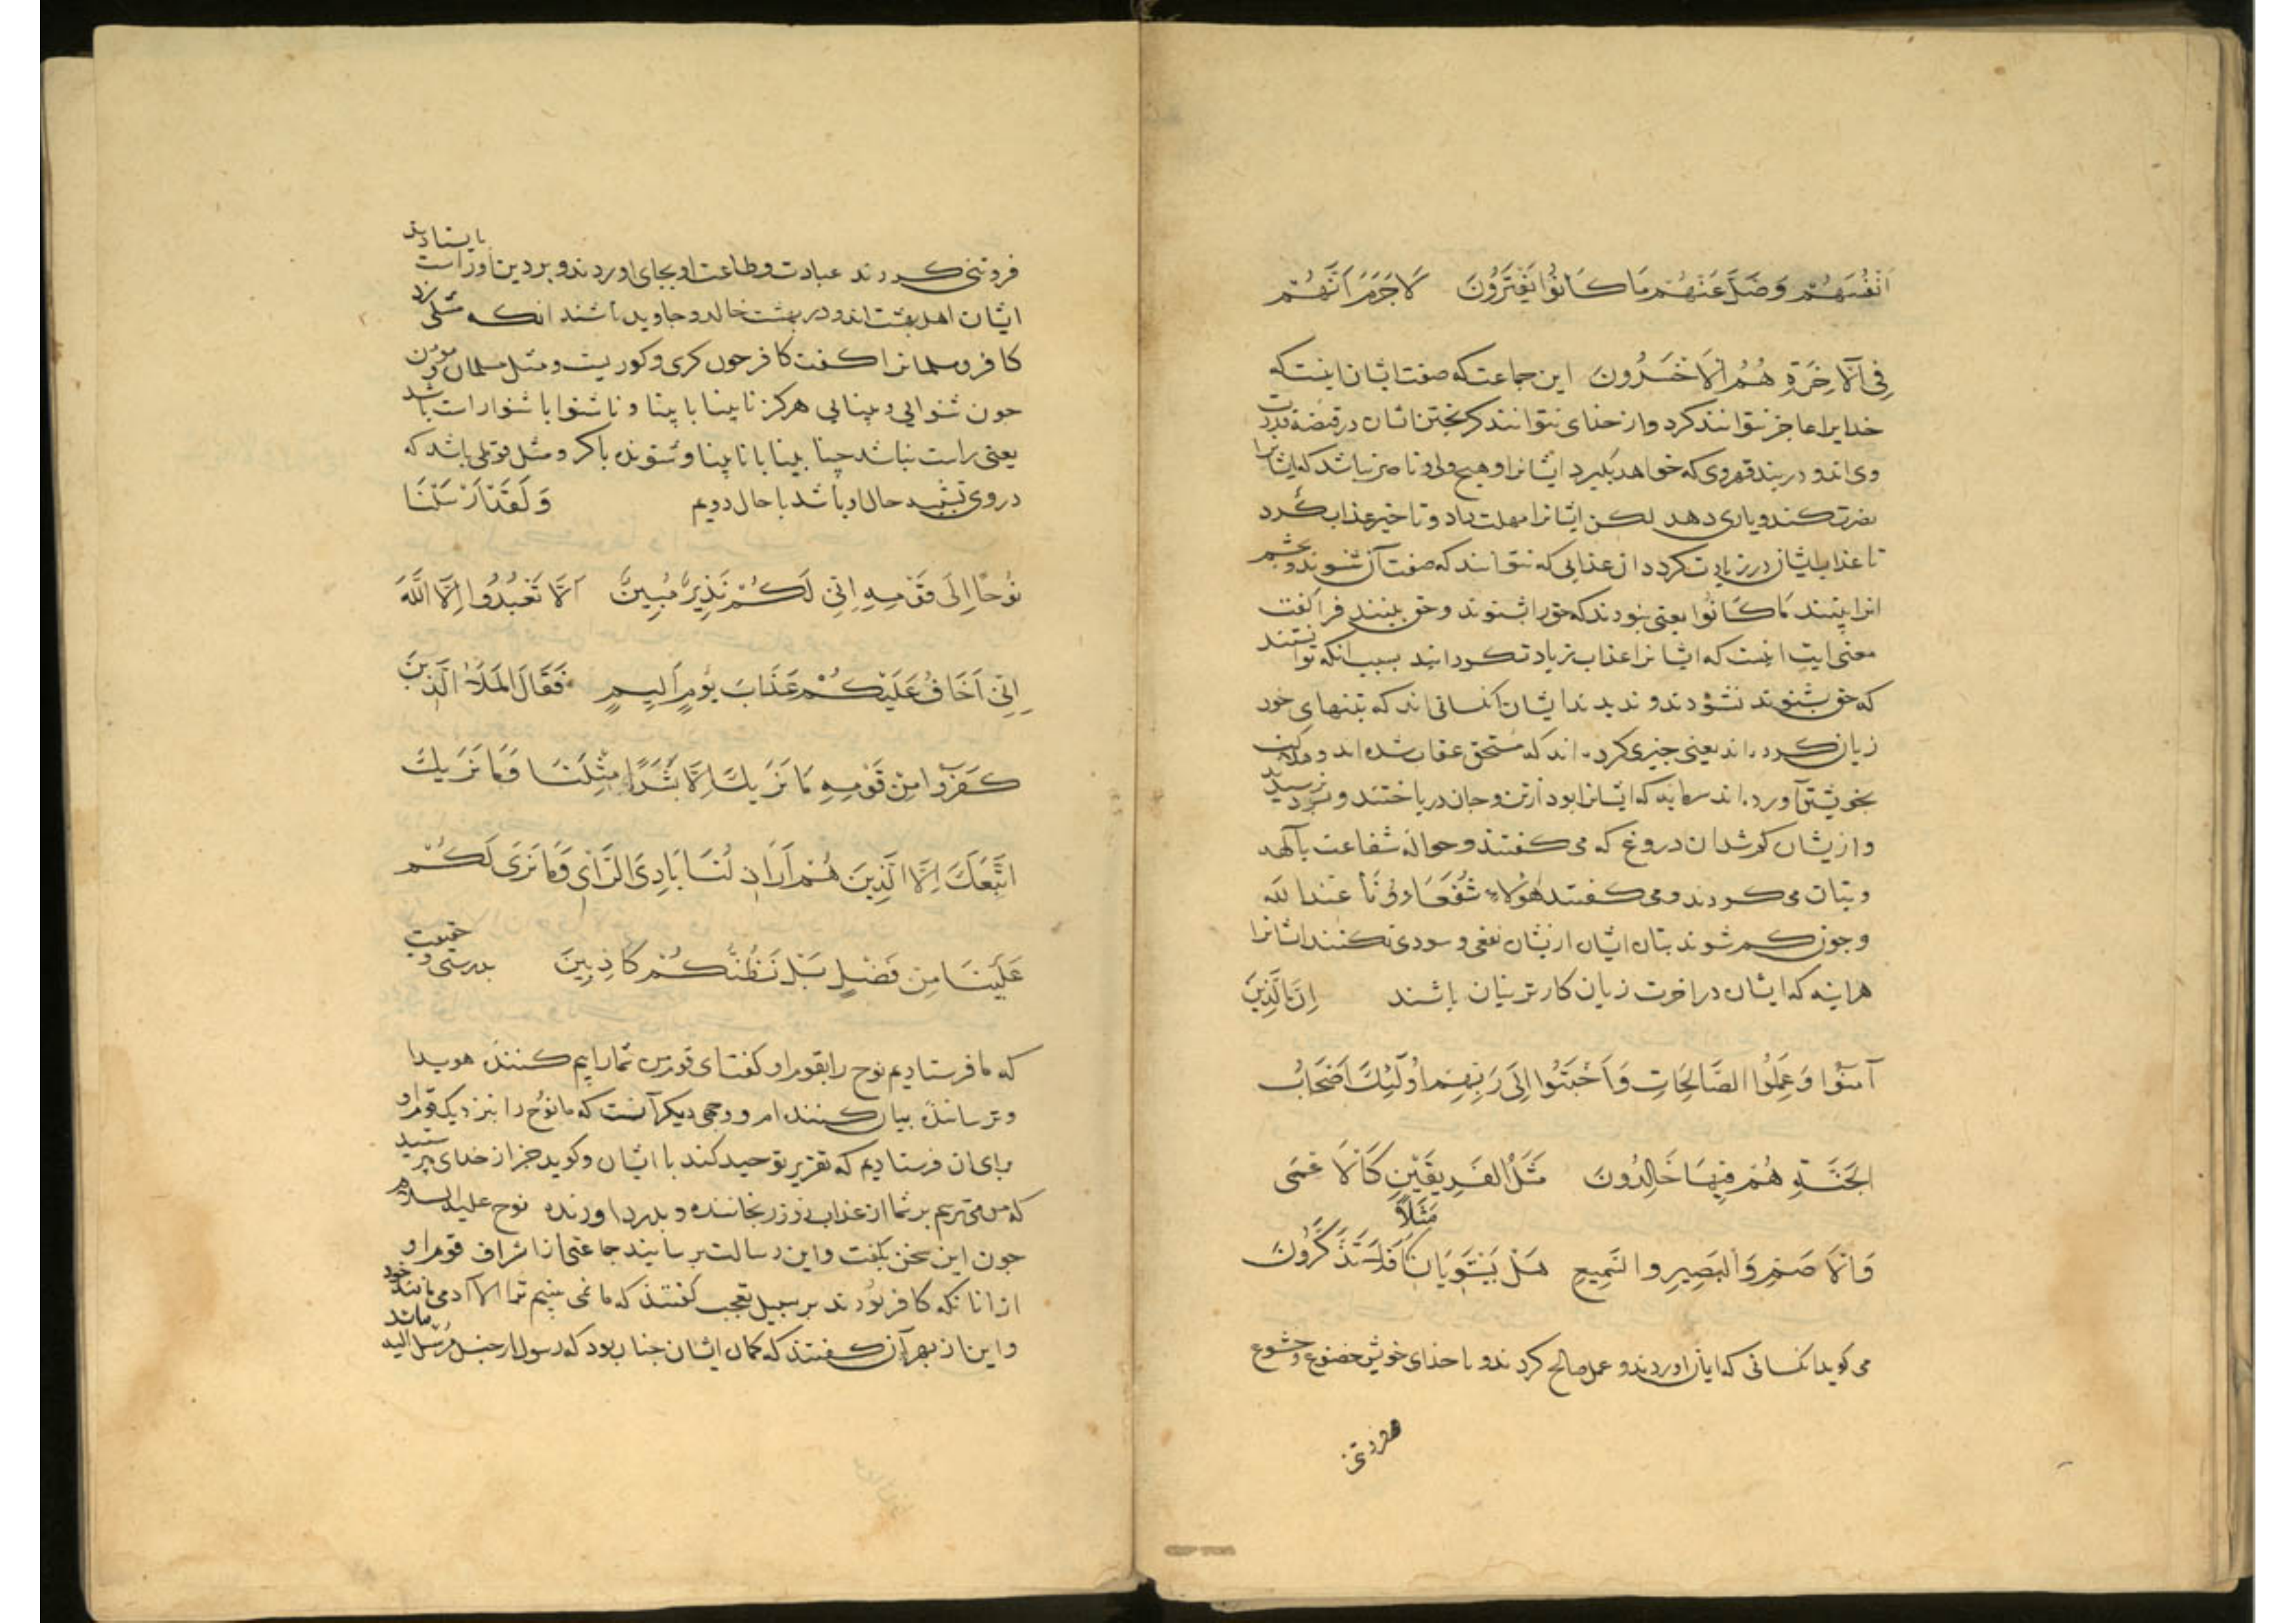 اَنْفُسَهُمْ وَضَلَّ عَنْهُمْ مَا كَانُوا يَفْتَرُونَ لَا جَرَمَ اَنَّهُمْ
فِي الْآخِرَةِ هُمُ الْاَخْسَرُونَ این جماعت که صفت ایشان اینست که
خدایرا عاجز نتوانند کرد و از خدای نتوانند گریختن ایشان در قبضهٔ قدرت
وی اند و در بند قهر وی که خواهد بگیرد ایشانرا و هیچ ولی و ناصر نباشد که ایشانرا
نصرت کند و یاری دهد لکن ایشانرا مهلت داد و تاخیر عذاب کرد
تا عذاب ایشان در زیادت کردد از عذابی که نتوانند که صفت آن شنوند و بچشم
انرا بینند مَا كَانُوا یعنی نبودند که حق را شنوند و حق بینند فرا گفت
معنی ایت انست که ایشانرا عذاب زیادت کردانند بسبب انکه توانستند
که حق بشنوند نشنودند و ندیدند ایشان کسانی اند که بتنهای خود
زیان کرده اند یعنی چیزی کرده اند که مستحق عقاب شده اند و هلاکت
بخویشتن آورده اند سرمایه که ایشانرا بود از تن و جان در باختند و بسود نرسیدند
و از یشان کم شد ان دروغ که می گفتند و حواله شفاعت بآلهه
و بتان می کردند و می گفتند هٰؤُلَاءِ شُفَعَاؤُنَا عِنْدَ اللَّه
و چون کم شوند بتان ایشان ازیشان نفعی و سودی نکنند ایشانرا
هراینه که ایشان در اخرت زیان کارترینان باشند اِنَّ الَّذِينَ
آمَنُوا وَعَمِلُوا الصَّالِحَاتِ وَاَخْبَتُوا اِلَى رَبِّهِمْ اُولَئِكَ اَصْحَابُ
الْجَنَّةِ هُمْ فِيهَا خَالِدُونَ مَثَلُ الْفَرِيقَيْنِ كَالْاَعْمَى
وَالْاَصَمِّ وَالْبَصِيرِ وَالسَّمِيعِ هَلْ يَسْتَوِيَانِ مَثَلًا اَفَلَا تَذَكَّرُونَ
می کوید کسانی که ایمان اوردند و عمل صالح کردند و با خدای خویش خضوع و خشوع
و فروتنی
فروتنی کردند عبادت و طاعت او بجای اوردند و بر دین او راست بایستادند
ایشان اهل بهشت اند و در بهشت خالد و جاوید باشند انکه مثلی زد
کافر و مسلمانرا گفت کافر چون کری و کوریست و مثل مسلمان و مومن
چون شنوایی و بینایی هرکز نابینا با بینا و ناشنوا با شنوا راست باشد
یعنی راست نباشد چنانا بینا با نابینا و شنونده با کر و مثل قولی باشد که
در وی تشبیه حال اول باشد با حال دویم وَلَقَدْ اَرْسَلْنَا
نُوحًا اِلَى قَوْمِهِ اِنِّي لَكُمْ نَذِيرٌ مُبِينٌ اَلَّا تَعْبُدُوا اِلَّا اللَّهَ
اِنِّي اَخَافُ عَلَيْكُمْ عَذَابَ يَوْمٍ اَلِيمٍ فَقَالَ الْمَلَأُ الَّذِينَ
كَفَرُوا مِنْ قَوْمِهِ مَا نَرَيكَ اِلَّا بَشَرًا مِثْلَنَا وَمَا نَرَيكَ
اتَّبَعَكَ اِلَّا الَّذِينَ هُمْ اَرَاذِلُنَا بَادِيَ الرَّأْيِ وَمَا نَرَى لَكُمْ
عَلَيْنَا مِنْ فَضْلٍ بَلْ نَظُنُّكُمْ كَاذِبِينَ بدرستی و حقیقت
که ما فرستادیم نوح را بقوم او کفت ای قوم من شمارا بیم کننده هویدا
و ترسانندهٔ بیان کننده ام و وجهی دیکر آنست که ما نوح را بنزدیک قوم او
برای ان فرستادیم که تقریر توحید کند با ایشان و کوید جز از خدای مپرستید
که من می ترسم بر شما از عذاب روز رنجاننده و بدرد اورنده نوح علیه السلام
چون این سخن بکفت و این رسالت برسانید جماعتی از اشراف قوم او
از انانکه کافر بودند بر سبیل تعجب کفتند که ما نمی بینیم ترا الا آدمی مانند خود
و این از بهر آن کفتند که کمان ایشان چنان بود که رسول از جنس مرسل الیه ماند